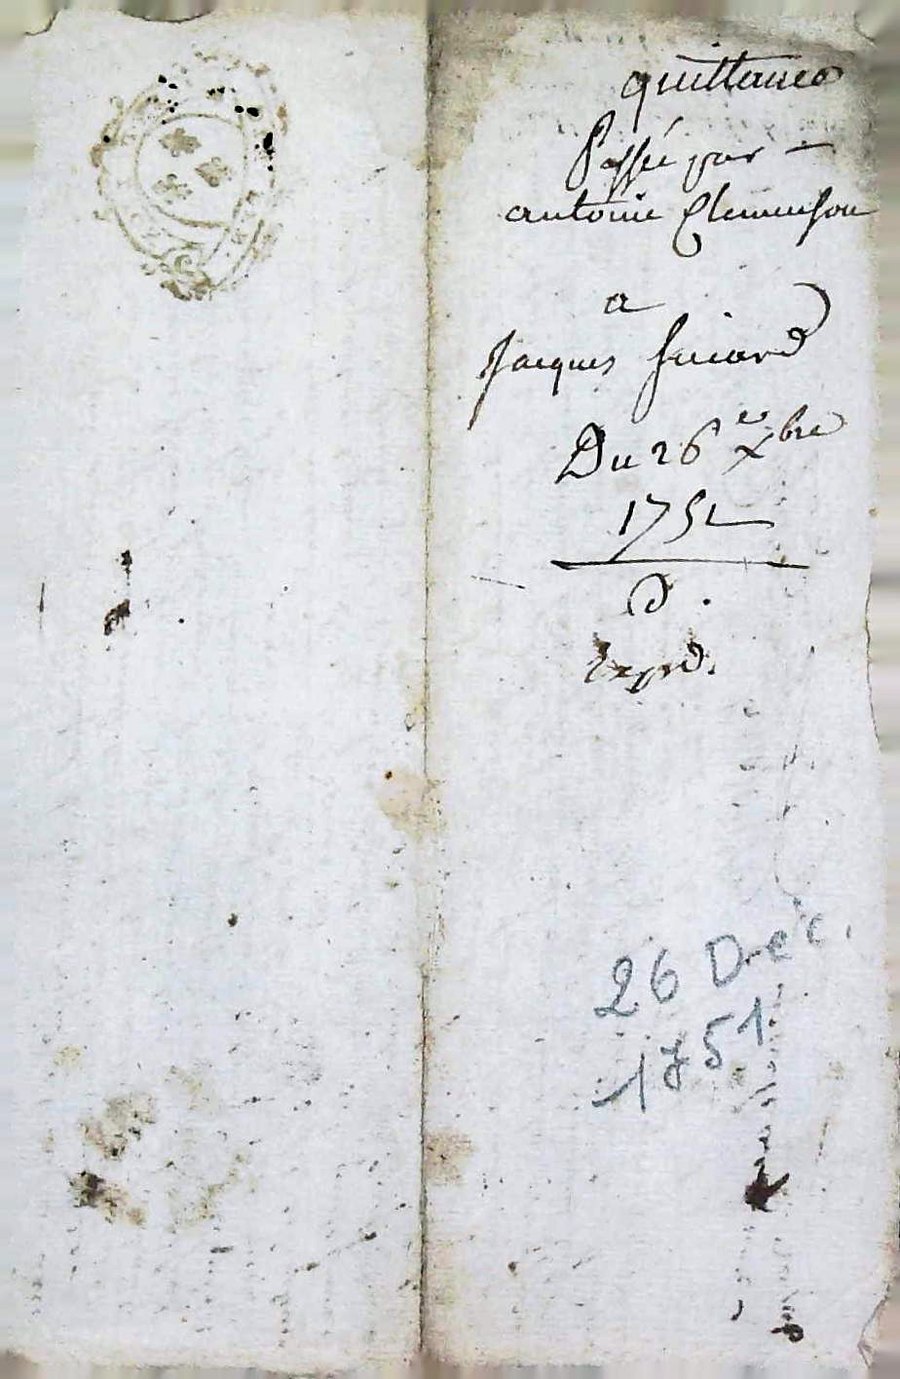 quittance
Passée par
antoine Clemenson
a
Jacques
Du 26e xbre
1751
D.
Expd.
26 Dec.
1751